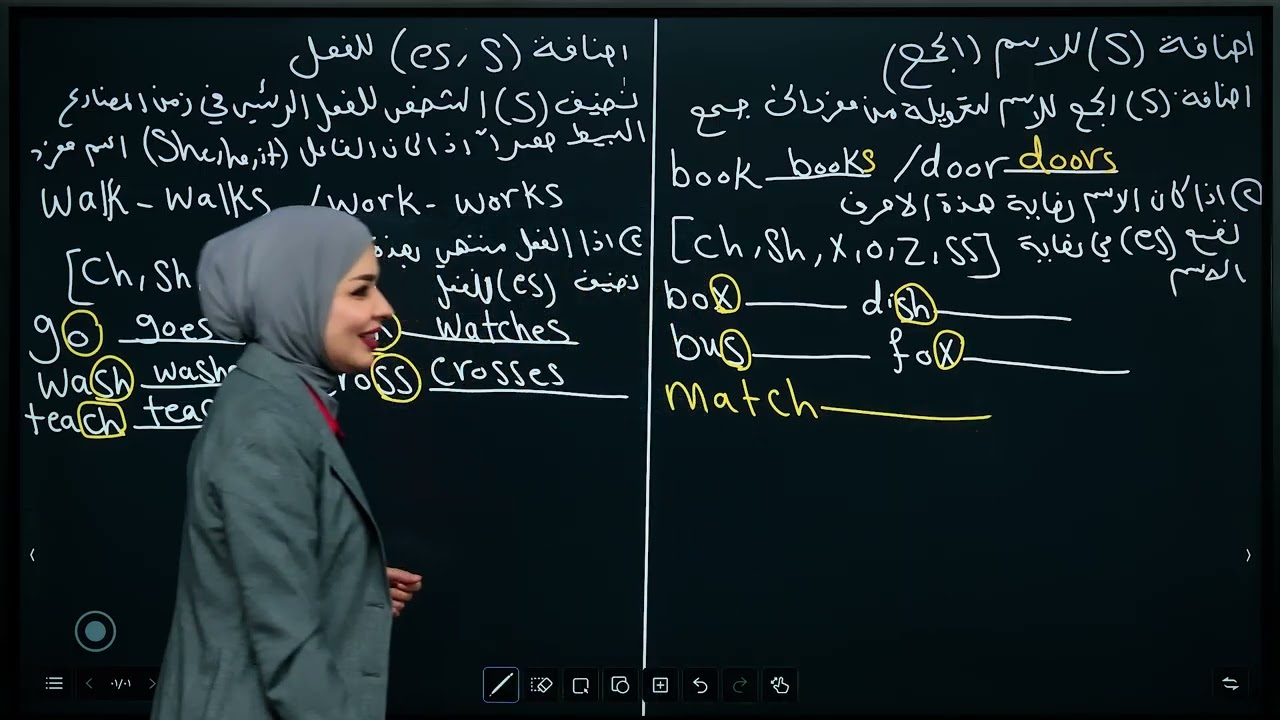 اضافة (S) للاسم (الجمع)
اضافة (S) الجمع للاسم لتحويلة من مفرد الى جمع
book books / door doors
② اذا كان الاسم نهاية هذة الاحرف
[ch, sh, x, o, z, ss] نضع (es) في نهاية الاسم
box dish
bus fox
match
اضافة (es, s) للفعل
نضيف (S) الشخص للفعل الرئيسي في زمن المضارع
البسيط حصراً اذا كان الفاعل (She, he, it) اسم مفرد
walk - walks / work - works
② اذا الفعل منتهي بهذة
[ch, sh, نضيف (es) للفعل
go goes watches
wash washe ross crosses
teach teac
٠١/٠١